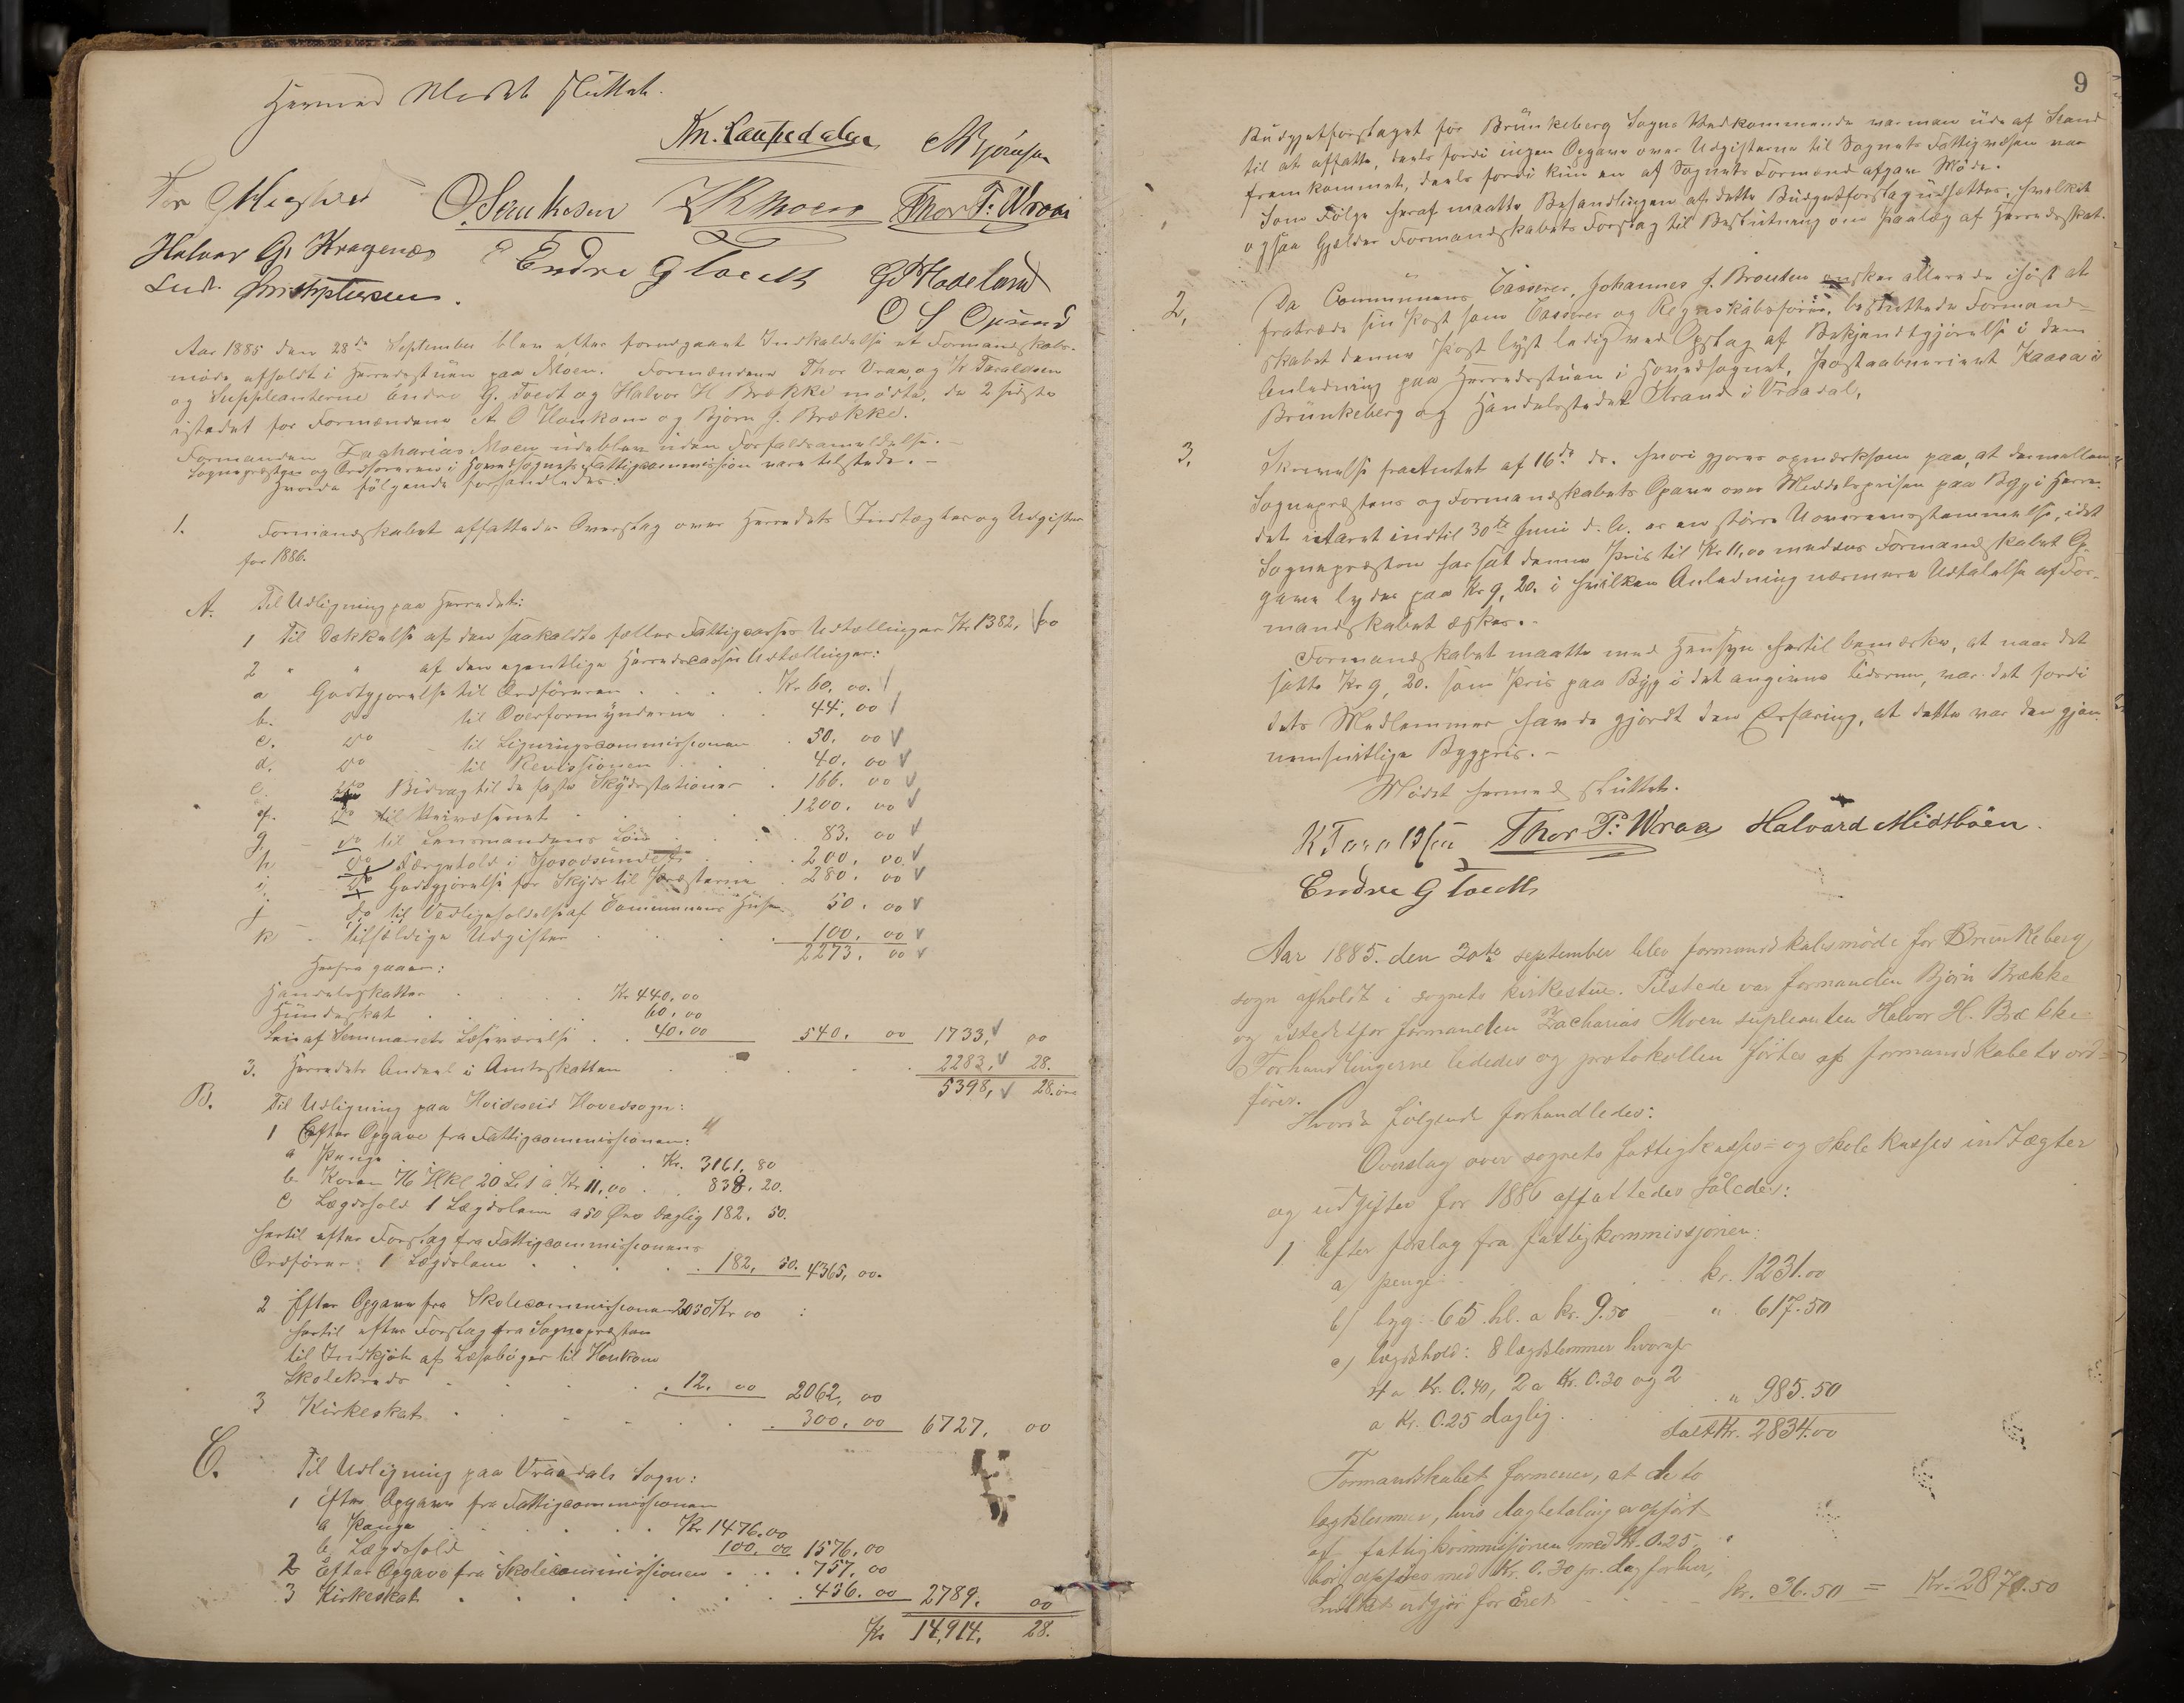 Hermed Mødet sluttet.
Kn. Laupedalen ABjørnsen
Tor O. Serukesen ZKMoen Thor T: Wraa
Halvor G. Kragenæs Endre G Tvedt G Hadeland
Lud. Christophersen. O S Opsund
Aar 1885 den 28de September blev efter foregaaende Indkaldelse et Formandskabs-
møde afholdt i Herredsstuen paa Moen. Formændene Thor Vraa og K Taraldsen
og Suppleanterne Endre G. Tvedt og Halvor H Brække mødte, de 2 sidste
istedet for Formændene A O Haukom og Bjørn G. Brække.
Formanden Zacharias Moen udeblev uden Forfaldsanmeldelse. –
Sognepræsten og Ordføreren i Hovedsognets Fattigcommission vare tilstede. –
Hvorda følgende forhandledes:
1. Formandskabet affattede Overslag over Herredets Indtægter og Udgifter
for 1886.
A. Til Udligning paa Herredet:
1 Til Dækkelse af den saakaldte fælles Fattigcasses Udtællinger Kr 1382. 00
2 " " af den egentlige Herredscasses Udtællinger:
a Godtgjørelse til Ordføreren . . . . Kr 60, 00.
b. Do til Overformynderne . . 44, 00
c. Do til Ligningscommissionen . 50. 00
d. Do til Revisionen . . . 40. 00
e. Bidrag til de faste Skydsstationer . 166. 00
f. Do til Veivæsenet . . . . 1200. 00
g Do til Lensmandens Løn . . . 83. 00
h. Færgehold i . . 200. 00
i. Godtgjørelse for Skyds til Præsterne . 280. 00
j do til Vedligeholdelse af Communens Huse 50. 00
k – tilfældige Udgifter . . . 100. 00
2273. 00
Herfra gaaer:
Handelsskatter . . . . Kr 440,00
Hundeskat . . . . 60,00
Leie af Seminariets Læseværelse . . 40.00 540. 00 1733, 00
3. Herredets Andeel i Amtsskatten . . . . 2283, 28.
5398, 28.øre
B. Til Udligning paa Hvideseid Hovedsogn:
1 Efter Opgave fra Fattigcommissionen:
a Penge . . . . Kr. 3161, 80
b Korn 76 Hkl 20 Lt à Kr 11,00 . . 838. 20.
c Lægdshold 1 Lægdslem a 50 Øre daglig 182. 50.
hertil efter Forslag fra Fattigcommissionens
Ordfører: 1 Lægdslem . . . . 182, 50. 4365, 00.
2 Efter Opgave fra Skolecommissionen 2050 Kr 00
hertil efter Forslag fra Sognepræsten
til Indkjøb af Læsebøger til Haukom
Skolekreds . . . . . 12. 00 2062, 00
3 Kirkeskat . . . . . . 300. 00 6727, 00
C. Til Udligning paa Vraadals Sogn:
1 Efter Opgave fra Fattigcommissionen
a Penge . . . . . Kr 1476.00
b Lægdshold 100. 00 1576,00
2 Efter Opgave fra Skolecommissionen . . . 757, 00
3 Kirkeskat . . . . . . . 456. 00 2789. 00
Kr 14,914, 28.
9
Budgetforslaget for Brunkeberg Sogns Vedkommende var man ude af Stand
til at affatte, deels fordi ingen Opgave over Udgifterne til Sognets Fattigvæsen var
fremkommet, deels fordi kun en af Sognets Formænd afgav Møde.
Som Følge heraf maatte Behandlingen af dette Budgetforslag udsættes, hvilket
ogsaa gjælder Formandskabets Forslag til Beslutning om Paalæg af Herredsskat.
2, Da Communens Casserer, Johannes J. Brouten ønsker allerede ihøst at
fratræde sin Post som Casserer og Regnskabsfører, besluttede Formand-
skabet denne Post lyst ledig ved Opslag af Bekjendtgjørelse i den
Anledning paa Herredsstuen i Hovedsognet, Postaabneriet Kaasa i
Brunkeberg og Handelsstedet Strand i Vraadal.
3, Skrivelse fra Amtet af 16de ds. hvori gjøres opmærksom paa, at der mellem
Sognepræstens og Formandskabets Opgave over Middelprisen paa Byg i Herre-
det i Aaret indtil 30te Juni d. A. er en større Uoverensstemmelse, idet
Sognepræsten har sat denne Pris til Kr 11,00 medens Formandskabet Op-
gave lyder paa Kr 9, 20. i hvilken Anledning nærmere Udtalelse af For-
mandskabet æskes. -
Formandskabet maatte med Hensyn hertil bemærke, at naar det
satte Kr 9, 20. som Pris paa Byg i det angivne Tidsrum, var det fordi
dets Medlemmer havde gjordt den Erfaring, at dette var den gjen-
nemsnitlige Bygpris. –
Mødet hermed sluttet.
K Tara Thor T: Wraa Halvard Midtbøen.
Endre G Tvedt
Aar 1885. den 30te september blev formandskabsmøde for Brunkeberg
sogn afholdt i sognets kirkestue. Tilstede var formanden Bjørn Brække
og istedetfor formanden Zacharias Moen supleanten Halvor H. Brække
Forhandlingerne lededes og protokollen førtes af formandskabets ord-
fører.
Hvorda følgende forhandledes:
Overslag over sognets fattigkasses- og skolekasses indtægter
og udgifter for 1886 affattedes således:
1 Efter forslag fra fattigkommissjonen:
a) penge . . . kr. 1231.00
b) byg: 65 hl. a kr. 9.50 – " 617.50
c) lægdshold: 8 lægdslemmer hvoraf
4 a kr. 0.40, 2 a kr. 0.30 og 2
a kr. 0.25 daglig . . " 985.50
Ialt Kr. 2834.00
Formandskabet formener, at de to
lægdslemmer, hvis dagbetaling er opført
af fattigkommissjonen med kr. 0.25
bør opføres med kr. 0.30 pr. dag for hver,
hvilket udgjør for Året . . . kr. 36.50 = Kr. 2870.50